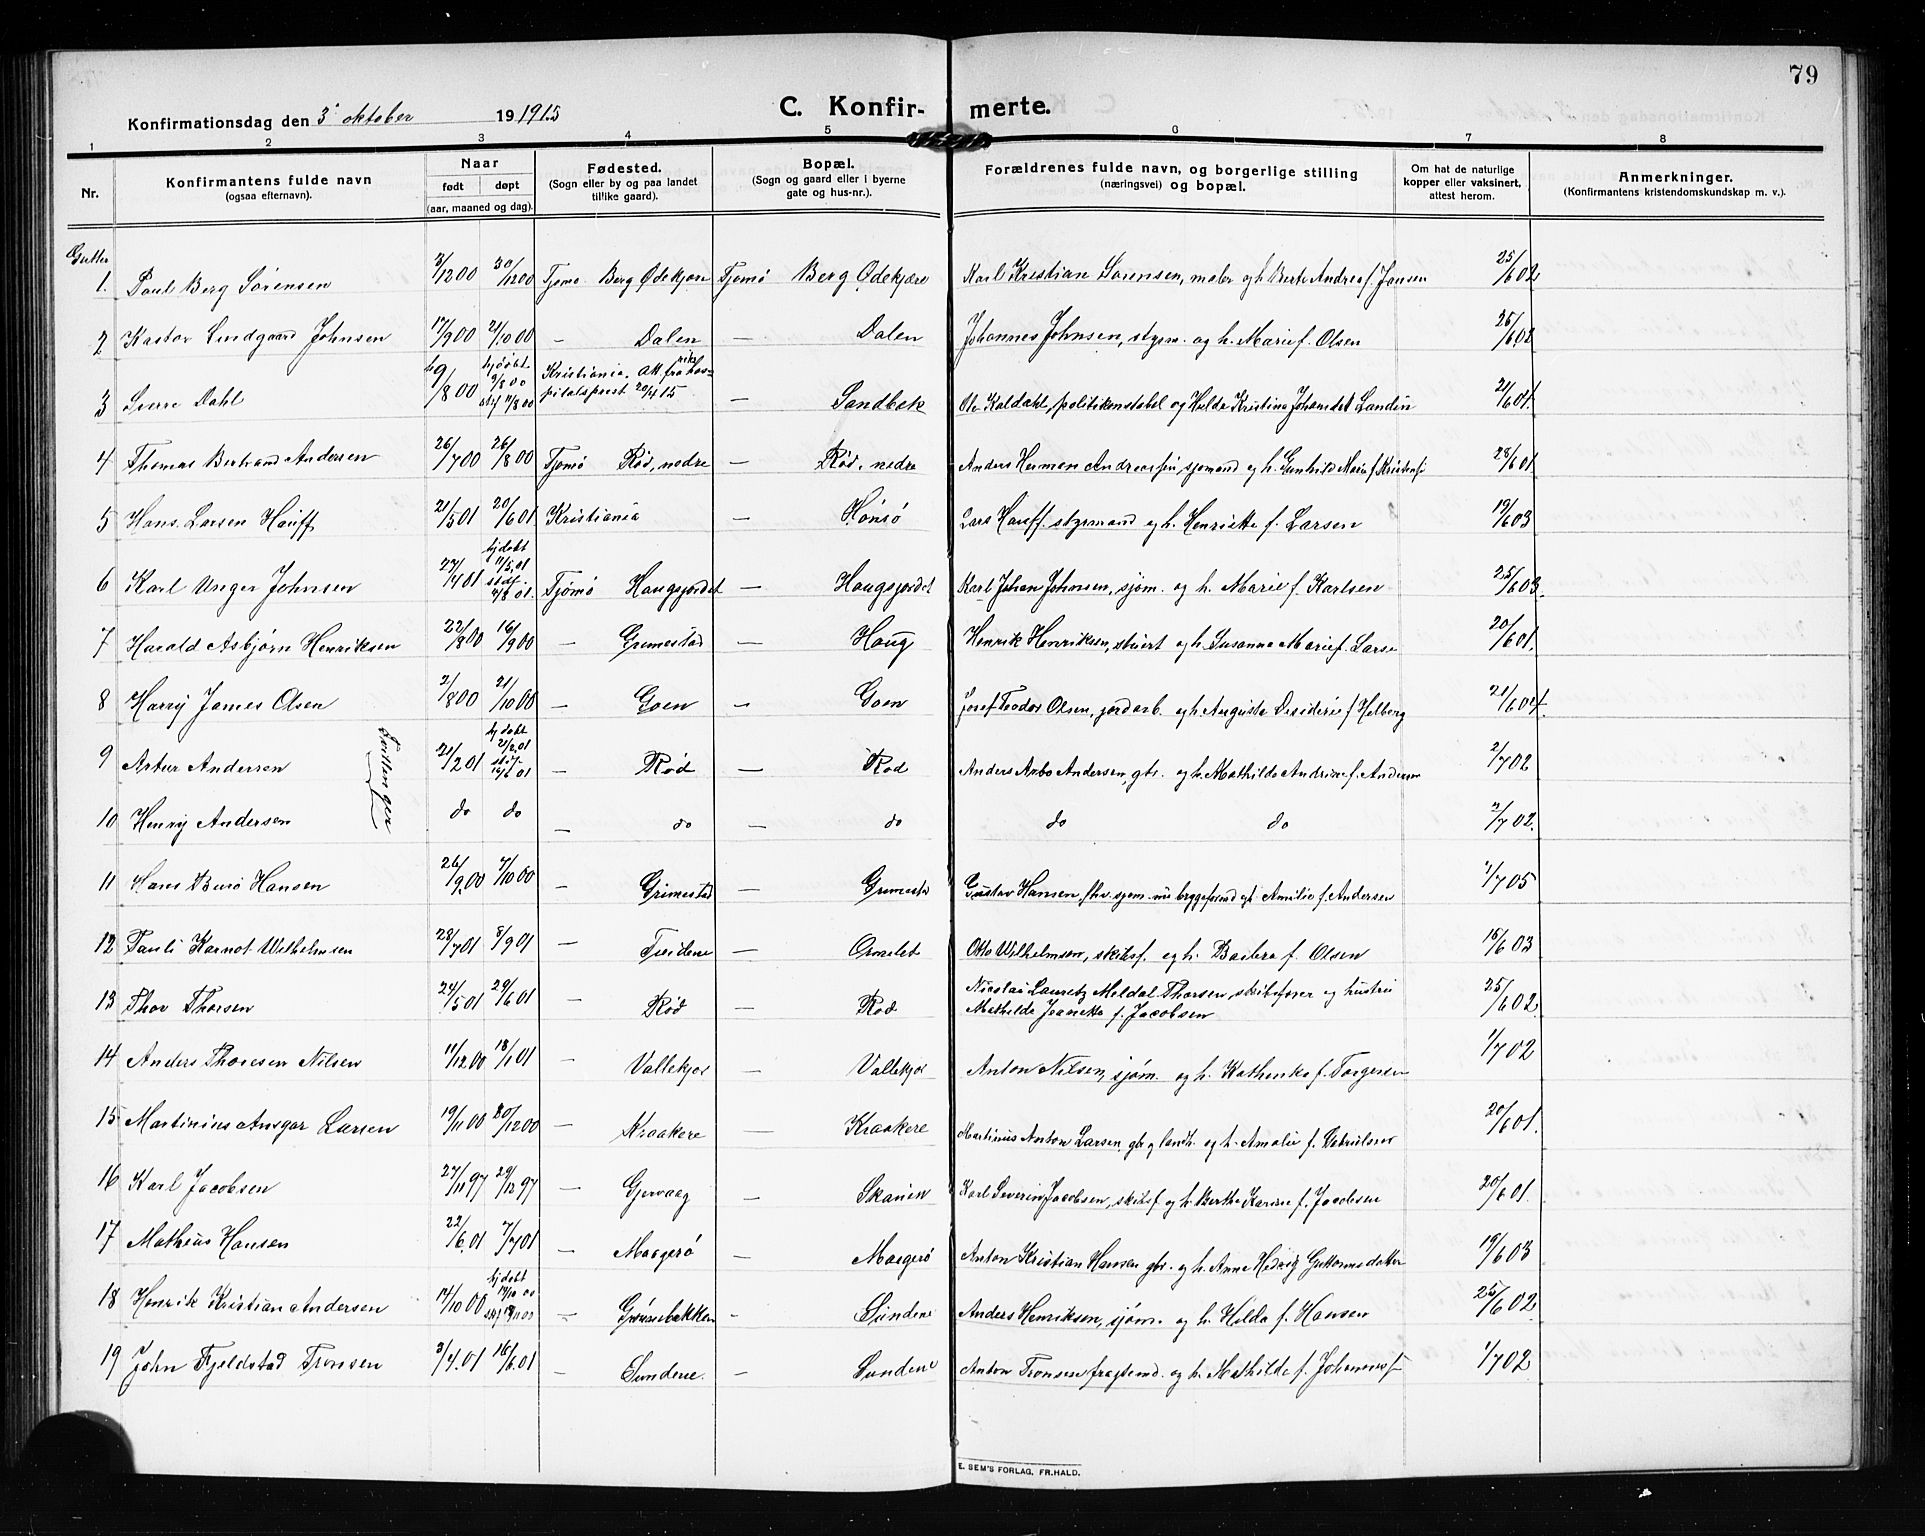 79
Konfirmationsdag den 3' oktober 19 1915
C. Konfir- merte.
1 2 3 4 5 6 7 8
Nr.
Konfirmantens fulde navn
(ogsaa efternavn).
Naar
født døpt
(aar, maaned og dag).
Fødested.
(Sogn eller by og paa landet
tillike gaard).
Bopæl.
(Sogn og gaard eller i byerne
gate og hus-nr.).
Forældrenes fulde navn, og borgerlige stilling
(næringsvei) og bopæl.
Om hat de naturlige
kopper eller vaksinert,
attest herom.
Anmerkninger.
(Konfirmantens kristendomskundskap m. v.).
Gutter
1. Paul Berg Sørensen 3/12 00 30/12 00 Tjømø Berg Ødekjær Tjømø Berg Ødekjære Karl Kristian Sørensen, maler og h. Berte Andrea f. Jansen 25/6 02
2 Kastor Lindgaard Johnsen 17/9 00 21/10 00 — Dalen — Dalen Johannes Johnsen, styrm. og h. Marie f. Olsen 26/6 02
3 Sverre Dahl 9/8 00 hjdøbt 9/8 00 Kristiania. Att. fra hospitalsprest 20/4 15 — Sandbæk Ole Kaldahl, politikonstabel og Hulda Kristine Landin 21/6 01.
4 Thomas Bertrand Andersen 26/7 00 26/8 00 Tjømø Rød, nedre — Rød, nedre Anders Herman Andreassen sjømand og h. Gunhild Marie f. 28/6 01
5 Hans Larsen Hauff 21/5 01 20/6 01 Kristiania — Hønsø Lars Hauff styrmand og h. Henriette f. Larsen 19/6 03
6 Karl Unger Johnsen 27/4 01 hjdøbt 11/5 01 Tjømø Haugsjordet — Haugsjordet Karl Johan Johnsen, sjøm. og h. Marie f. Karlsen 25/6 03.
7 Harald Asbjørn Henriksen 22/8 00 16/9 00 — Grimestad — Haug Henrik Henriksen, stuert og h. Susanne Marie f. Larse 20/6 01.
8 Harry James Olsen 2/8 00 21/10 00 — Goen — Goen Josef Teodor Olsen, jordarb. og h. Augusta Desiderie f. Helberg 21/6 04.
9 Artur Andersen 21/2 01 hjdøbt 21/2 01 — Rød — Rød Anders Arbo Andersen, gbr. og h. Mathilde Andrine f. Andersen 2/7 02
Tvillinger
10 Henry Andersen do do — do — do do do 2/7 02.
11 Hans Burø Hansen 26/9 00 7/10 00 — Grimestad — Grimesta Gustav Hansen, fhv. sjøm. nu og h. Amilie f. Andersen 1/7 05
12 Pauli Karnot Wilhelmsen 28/7 01 8/9 01 — Treidene — Ormelet Otto Wilhelmsen, skibsf. og h. Barbra f. Olsen 18/6 03
13 Thor Thorsen 24/5 01 29/6 01 — Rød — Rød Nicolai Lauretz Meldal Thorsen, skibsfører og hustru
Mathilde Jeanette f. Jacobsen 25/6 02.
14 Anders Thoresen Nilsen 11/12 00 18/1 01 — Vallekjær — Vallekjær Anton Nilsen, sjøm. og h. Kathinka f. Torgersen 1/7 02
15 Martinius Ansgar Larsen 19/11 00 30/12 00 — Kraakere — Kraakere Martinius Anton Larsen, gbr og landh. og h. Amalie f. 20/6 01.
16 Karl Jacobsen 27/11 97 29/12 97 — Gjervaag — Skauen Karl Severin Jacobsen, skibsf og h. Berthe Karine f. Jacobsen 20/6 01.
17 Mathius Hansen 22/6 01 7/7 01 — Maagerø — Maagerø Anton Kristian Hansen gbr. og h. Anne Hedvig Guttormsdatter 19/6 03
18 Henrik Kristian Andersen 14/10 00 hjdøbt 14/10 00 — Grønnebakken — Sundene Anders Henriksen, sjøm. og h. Hilda f. Hansen 25/6 02
19 John Fjeldstad Tronsen 3/4 01 16/6 01 — Sundene. — Sundene Anton Tronsen fragtemd. og h. Mathilde f. Johannes 1/7 02
E. SEM'S FORLAG, FR.HALD.